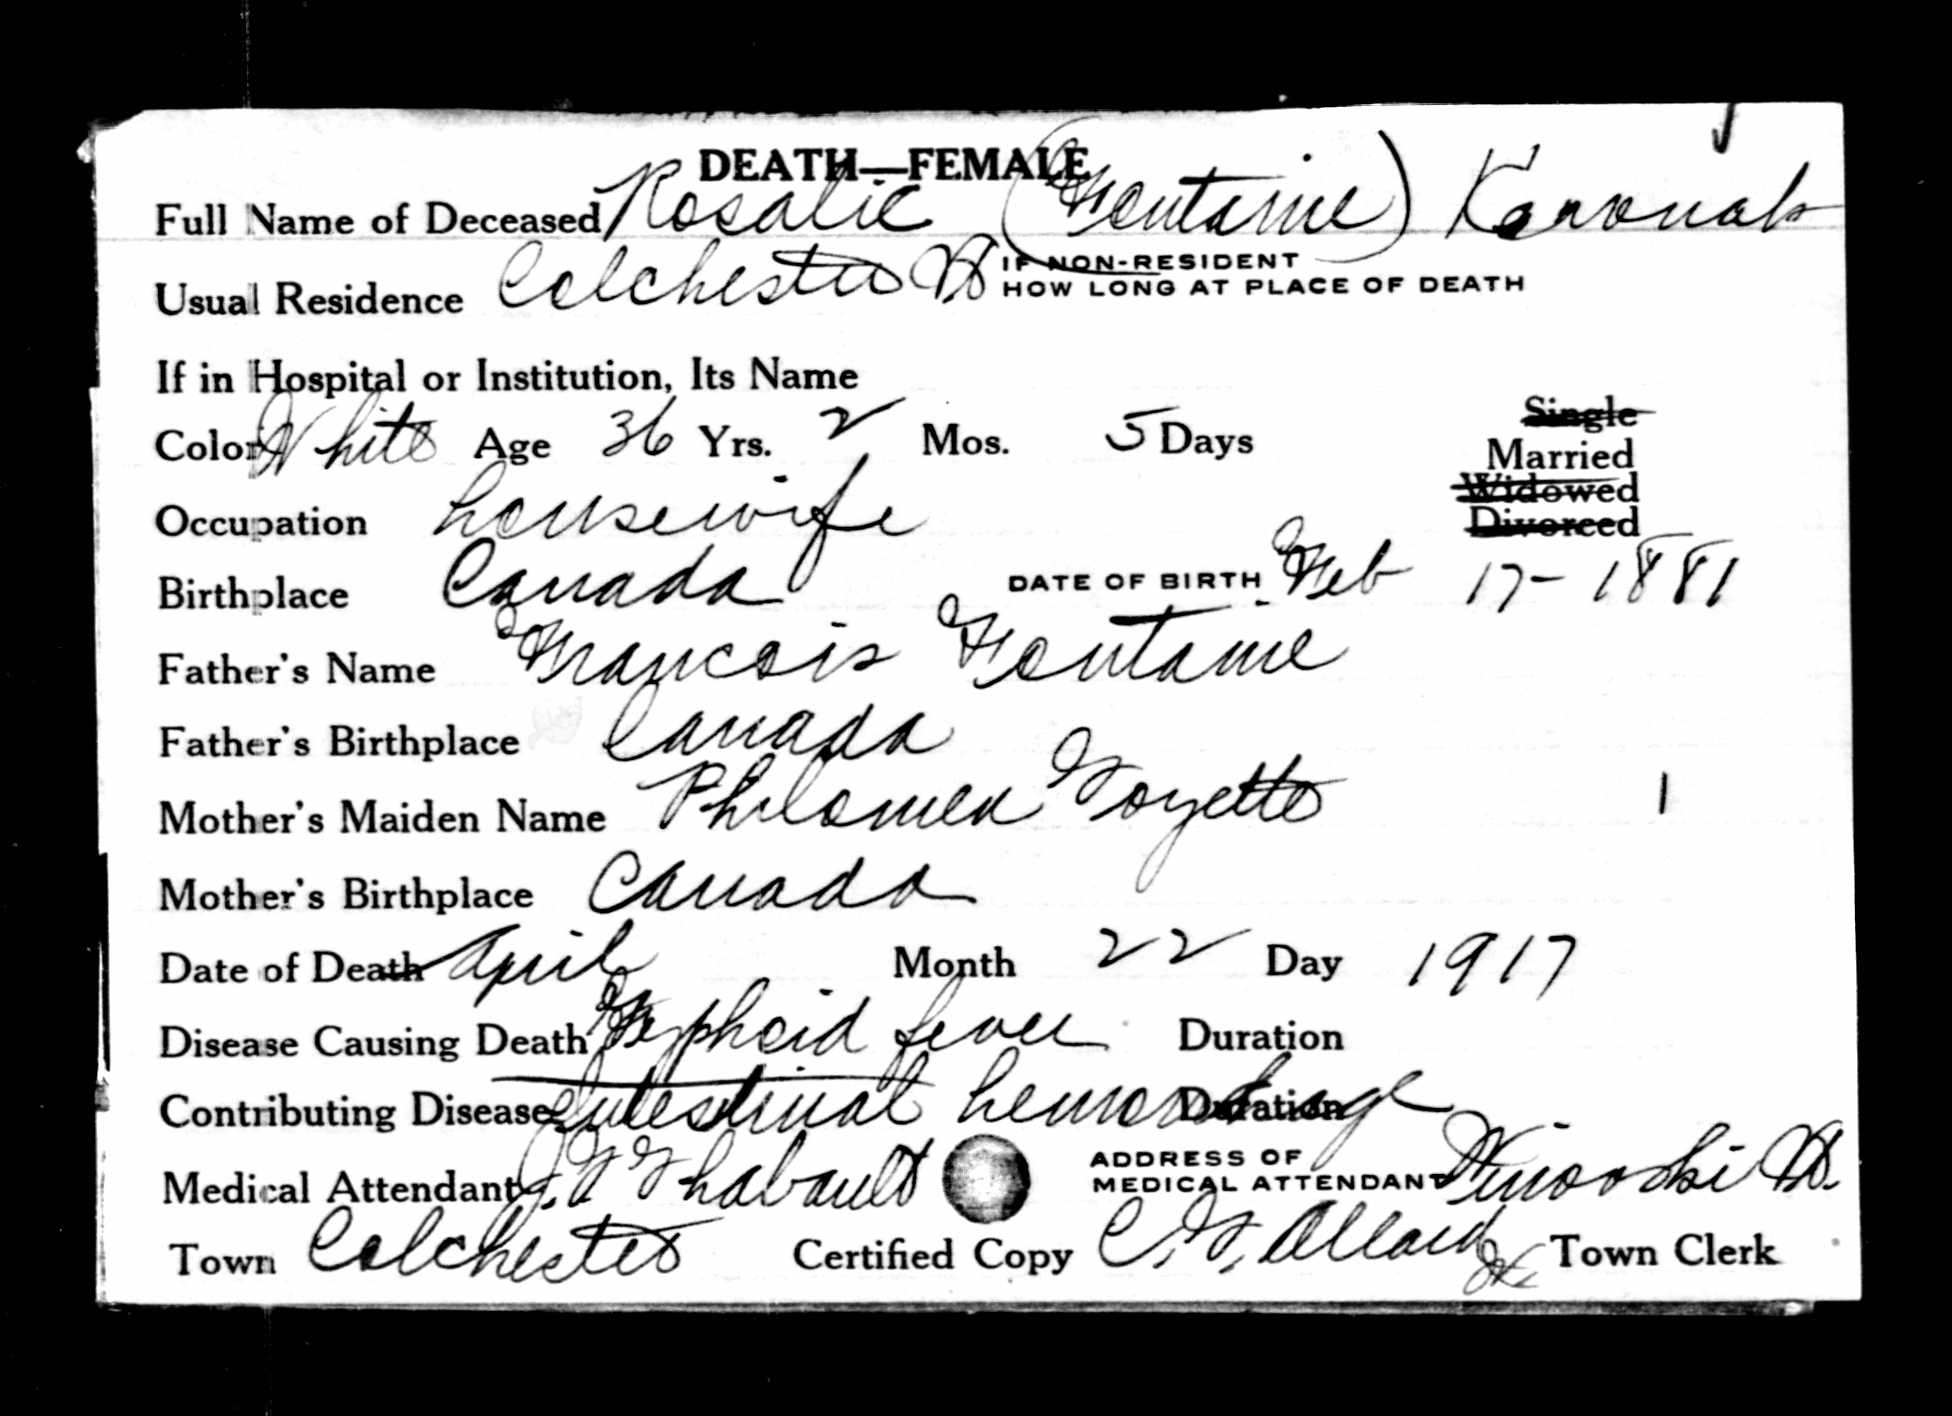 DEATH—FEMALE
Full Name of Deceased Rosalie (Fontaine)
Usual Residence Colchester Vt IF NON-RESIDENT HOW LONG AT PLACE OF DEATH
If in Hospital or Institution, Its Name
Color White Age 36 Yrs. 2 Mos. 5 Days
Single
Married
Widowed
Divorced
Occupation housewife
Birthplace Canada DATE OF BIRTH. Feb 17-1881
Father's Name Francois Fontaine
Father's Birthplace Canada
Mother's Maiden Name Philomen Goyette
Mother's Birthplace Canada
Date of Death April Month 22 Day 1917
Disease Causing Death Typhoid fever Duration
Contributing Disease Intestinal hemorrhage Duration
Medical Attendant Thabault ADDRESS OF MEDICAL ATTENDANT Winooski Vt.
Town Colchester Certified Copy Allard Town Clerk